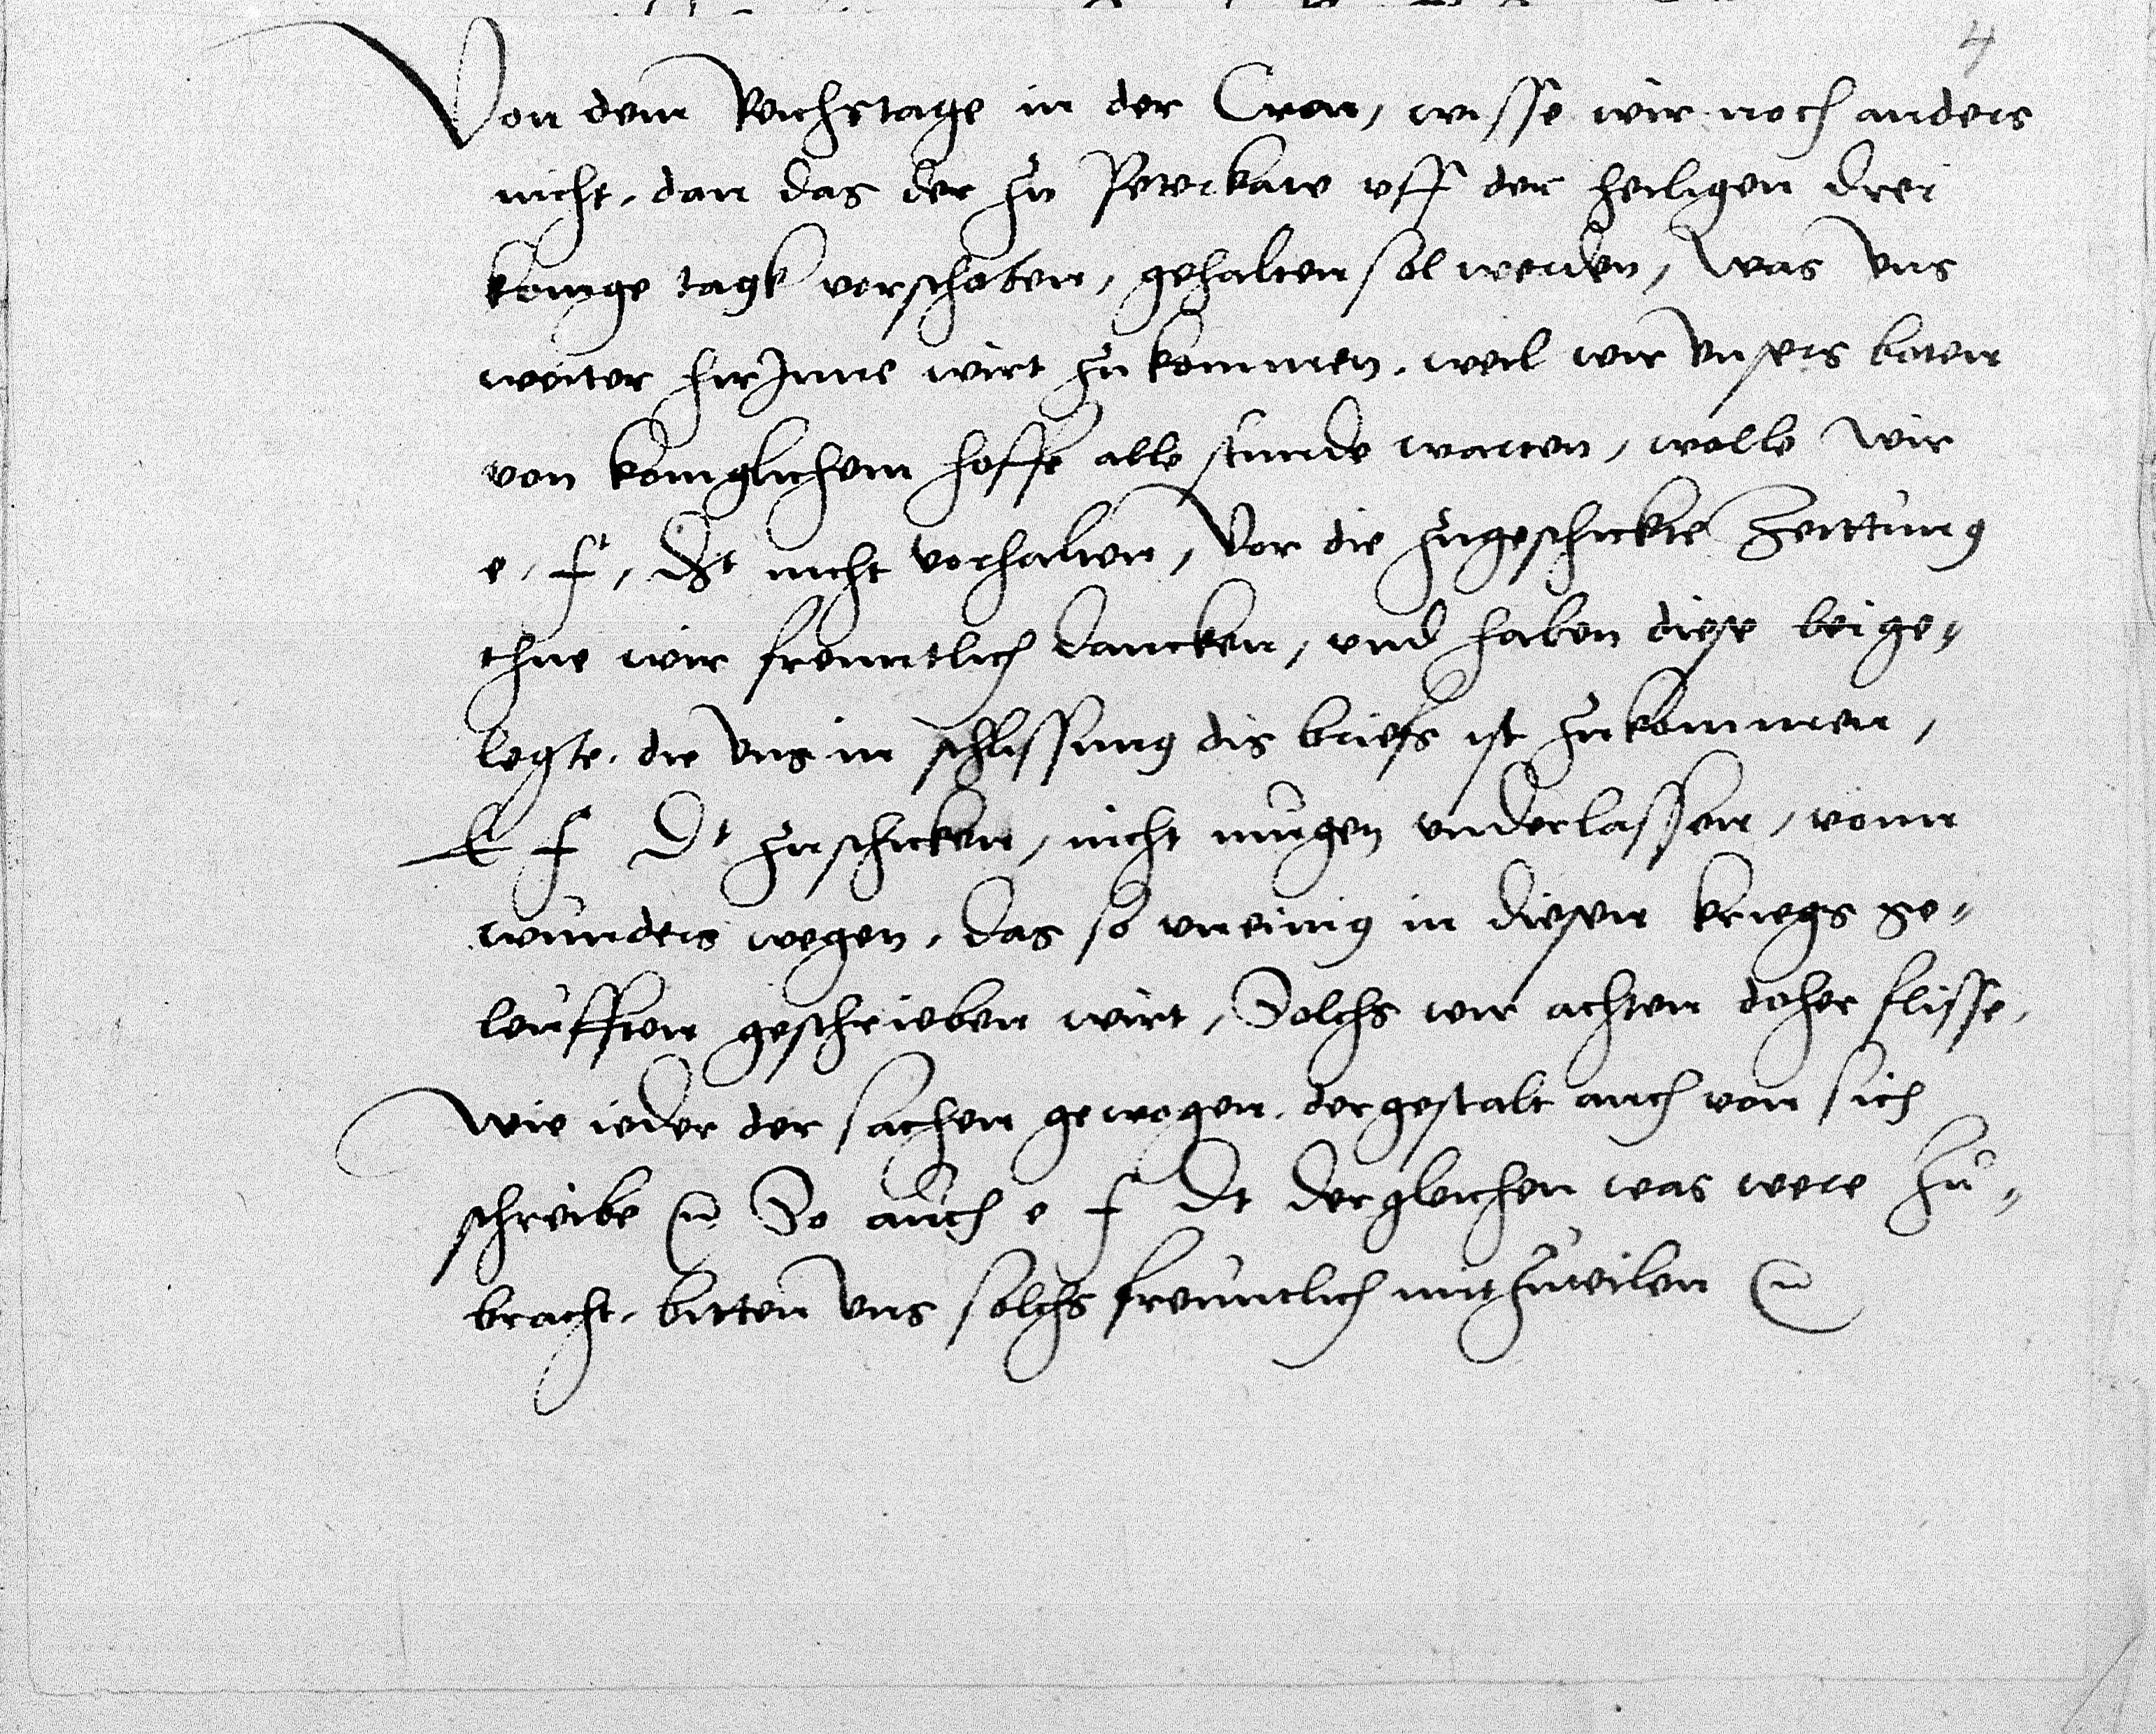 4
Von dem Reichstage in der Cron, wisse wir noch anders
nicht, dan das der zu Peterkaw vff der heiligen drei
konige tagk vorschoben, gehalten sol werden, Was vns
weiter hirInne wirt zukommen, weil wir vnsers boten
von koniglichem hoffe alle stunde warten, wolle wir
e. f. Dt nicht vorhalten, Vor die zugeschickte Zeittung
thue wir freuntlich dancken, vnd haben diese beige-
legte, die vns in schlissung dis briefs ist zukommen,
E f Dt zuschicken, nicht mugen vnderlassen, vom
wunders wegen, das so vneinig in diesen kriegs ge-
leufften geschrieben wirt, Solchs wir achten doher flisse,
Wie ieder der sachen gewogen, dergestalt auch von sich
schreibe So auch e f Dt dergleichen was were zu-
bracht, bitten vns solchs freuntlich mitzuteilen